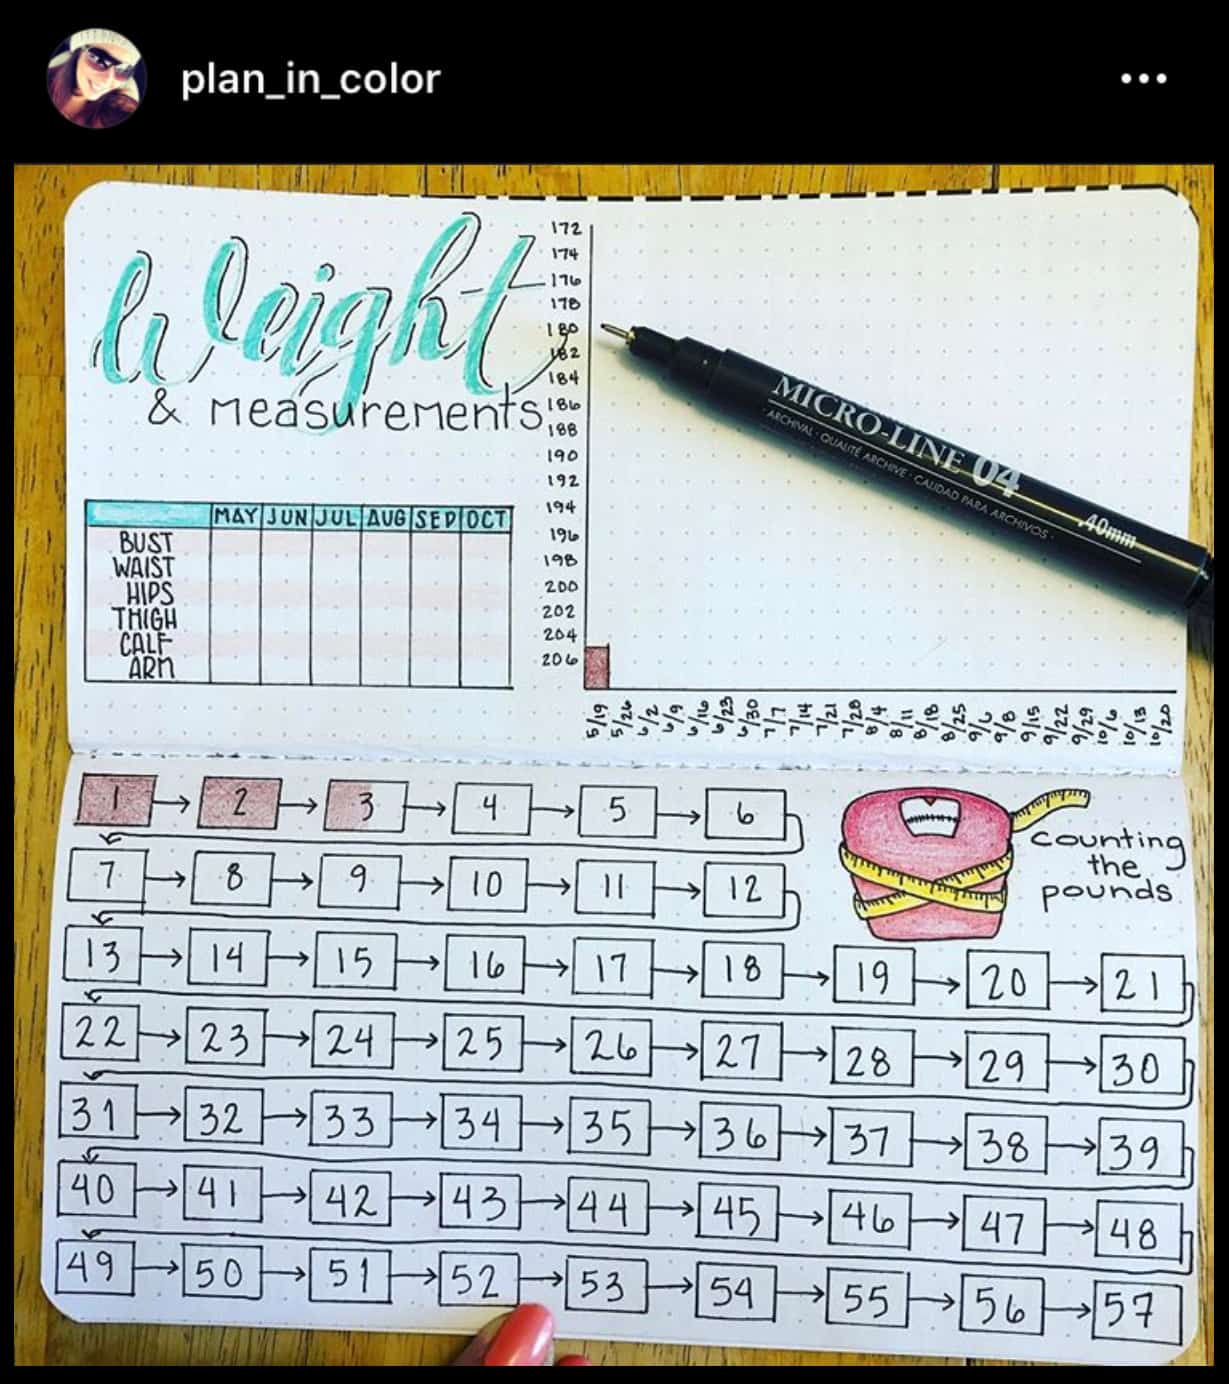 plan_in_color
Weight
& measurements
172
174
176
178
180
182
184
186
188
190
192
194
196
198
200
202
204
206
MICRO-LINE 04
ARCHIVAL · QUALITÉ ARCHIVE · CALIDAD PARA ARCHIVOS ·
.40mm
MAY JUN JUL AUG SEP OCT
BUST
WAIST
HIPS
THIGH
CALF
ARM
5/19 5/26 6/2 6/9 6/16 6/23 6/30 7/7 7/14 7/21 7/28 8/4 8/11 8/18 8/25 9/6 9/8 9/15 9/22 9/29 10/6 10/13 10/20
1 2 3 4 5 6
counting
the
pounds
7 8 9 10 11 12
13 14 15 16 17 18 19 20 21
22 23 24 25 26 27 28 29 30
31 32 33 34 35 36 37 38 39
40 41 42 43 44 45 46 47 48
49 50 51 52 53 54 55 56 57